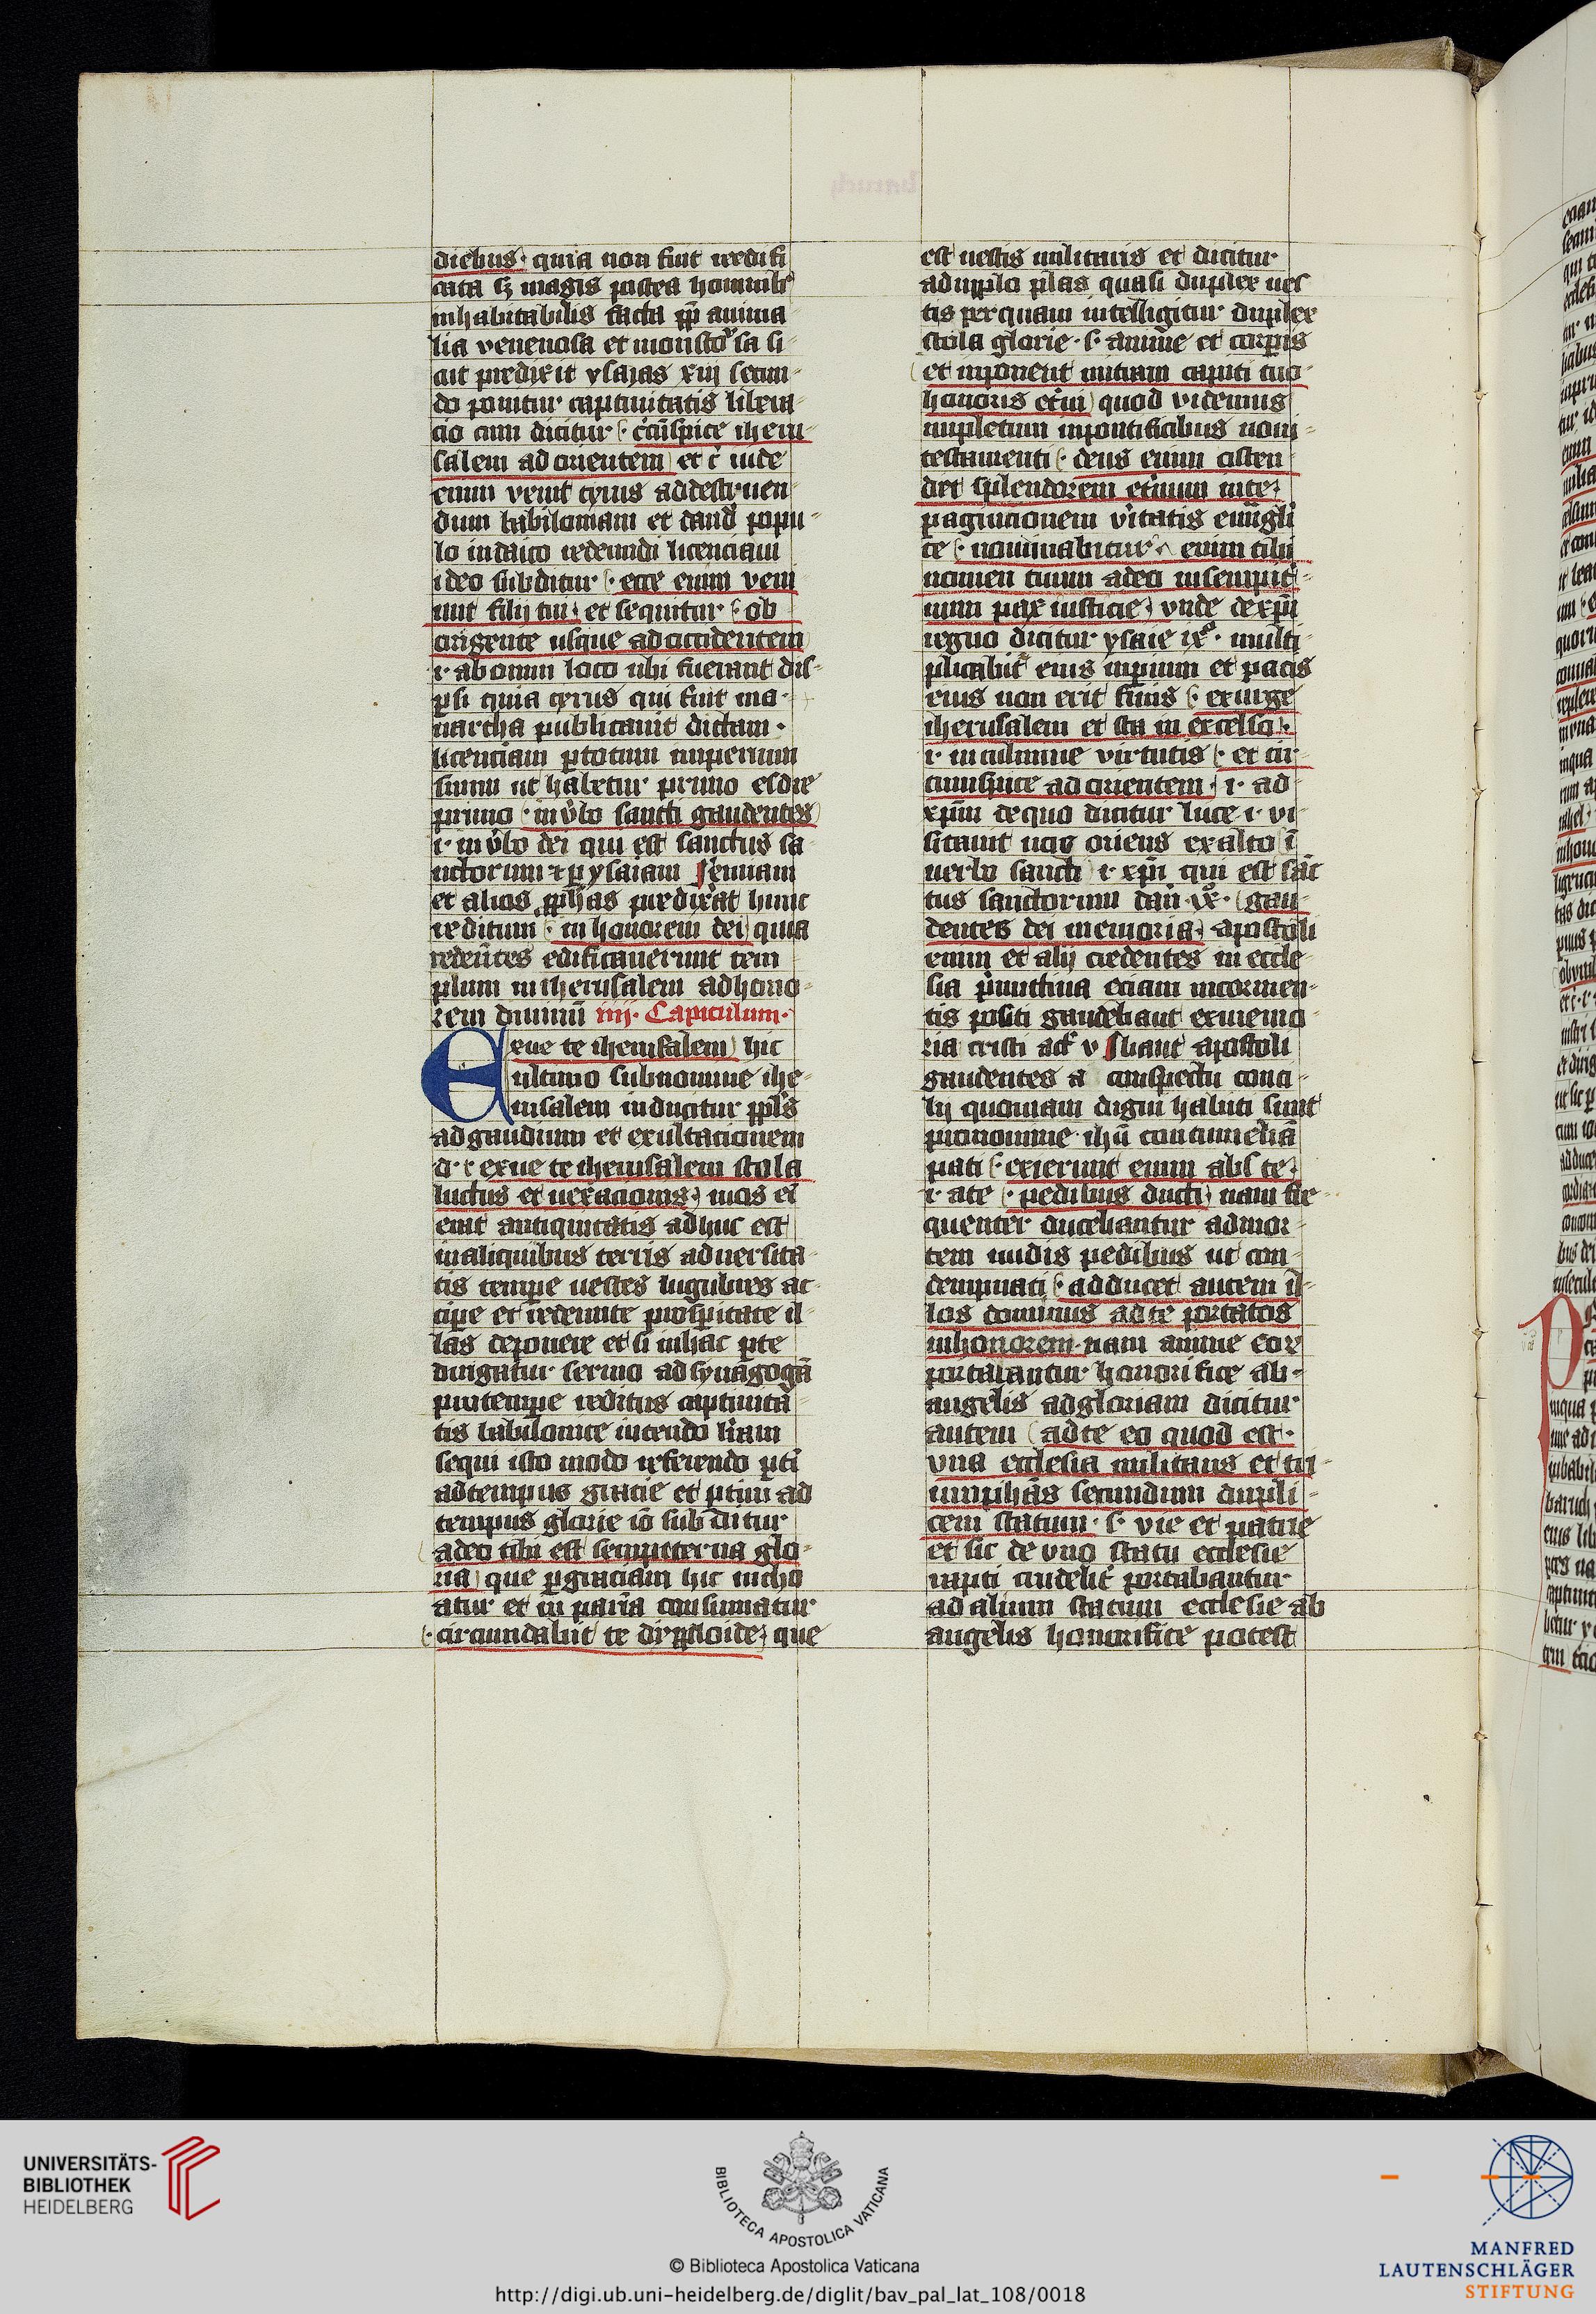 diebus· quia non fuit reedifi
cata sꝫ magis postea hominibꝰ
inhabitabilis facta ꝓpt̄ anima
lia venenosa et monstᵒsa si
cut predixit ysaias xiij secun
do ponitur captiuitatis libera
cio cum dicitur c̄cūspice iheru
salem ad orientem et c̄ inde
enim venit cyrus addestruen
dum babiloniam et dand̄ popu
lo iudaico redeundi licenciam
ideo subditur ecce enim veni
unt filij tui et sequitur ob
origente usque ad occidentem
·i· ab omni loco ubi fuerant dis
ꝑsi quia cyrus qui fuit mo
narcha publicauit dictam
licenciam ꝑtotum imperium
suum ut habetur primo esdre
primo in v̄bo sancti gaudentes
·i· in v̄bo dei qui est sanctus sa
nctorum ⁊ ꝑ ysaiam Jeremiam
et alios ꝓphas predixāt hunc
reditum in honorem dei quia
redeūtes edificauerunt tem
plum in iherusalem adhono
rem diuinū iiij· Capitulum·
Exue te iherusalem hic
ultimo subnomine ihe
rusalem inducitur ppls
ad gaudium et exultacionem
d· c exue te iherusalem stola
luctus et uexacionis mos ei
erat antiquitatis adhuc est
in aliquibus terris aduersita
tis tempore uestes lugubres ac
cipe et redeunte prosperitate il
las deponere et si inhac ꝑte
dirigatur sermo ad synagogā
protempore reditus captiuita
tis babilonice intendo l̄ram
sequi isto modo referendo ꝑti
ad tempus gracie et ꝑtim ad
tempus glorie iō subditur
adeo tibi est sempiterna glo
ria que ꝑ graciam hic incho
atur et in patria consumatur
circumdabit te dyploide que
est uestis militaris et dicitur
adupplo plas quasi duplex ues
tis per quam intelligitur duplex
stola glorie ·s· anime et corporis
et inponent mitram capiti tuo
honoris et̄ni quod videmus
impletum inpontificibus noui
testamenti deus enim osten
det splendorem et̄num inte
pagmacionem v̄itatis euūgli
ce nominabitur enim tibi
nomen tuum adeo in sempit̄
num pax iusticie vnde de xp̄i
regno dicitur ysaie ixº· multi
plicabit̄ eius inpium et pacis
eius non erit finis exurge
iherusalem et sta in excelso
·i· in culmine virtutis et cir
cumspice ad orientem ·i· ad
xp̄m de quo dicitur luce ·i· vi
sitauit nos oriens ex alto ī
uerbo sancti ·i· xp̄i qui est sāc
tus sanctorum dan̄ ·ix· gau
dentes dei memoria apostoli
enim et alij credentes in eccle
sia p̄mitiua eciam intormen
tis positi gaudebant ex memo
ria cristi act̄ v Jbant apostoli
gaudentes a conspectu conci
lij quoniam digni habiti sunt
pro nomine ihū contumeliā
pati exierunt enim abs te
·i· a te pedibus ducti nam fre
quenter ducebantur ad mor
tem nudis pedibus ut con
dempnati adducet autem il
los dominus ad te portatos
in honorem nam anime eoꝝ
portabantur honorifice ab
angelis ad gloriam dicitur
autem ad te eo quod est
vna ecclesia militans et tri
umphās secundum dupli
cem statum ·s· vie et patrie
et sic de vno statu ecclesie
rapti crudelit̄ portabantur
ad alium statum ecclesie ab
angelis honorifice potest
UNIVERSITÄTS-
BIBLIOTHEK
HEIDELBERG
BIBLIOTECA APOSTOLICA VATICANA
© Biblioteca Apostolica Vaticana
http://digi.ub.uni-heidelberg.de/diglit/bav_pal_lat_108/0018
MANFRED
LAUTENSCHLÄGER
STIFTUNG